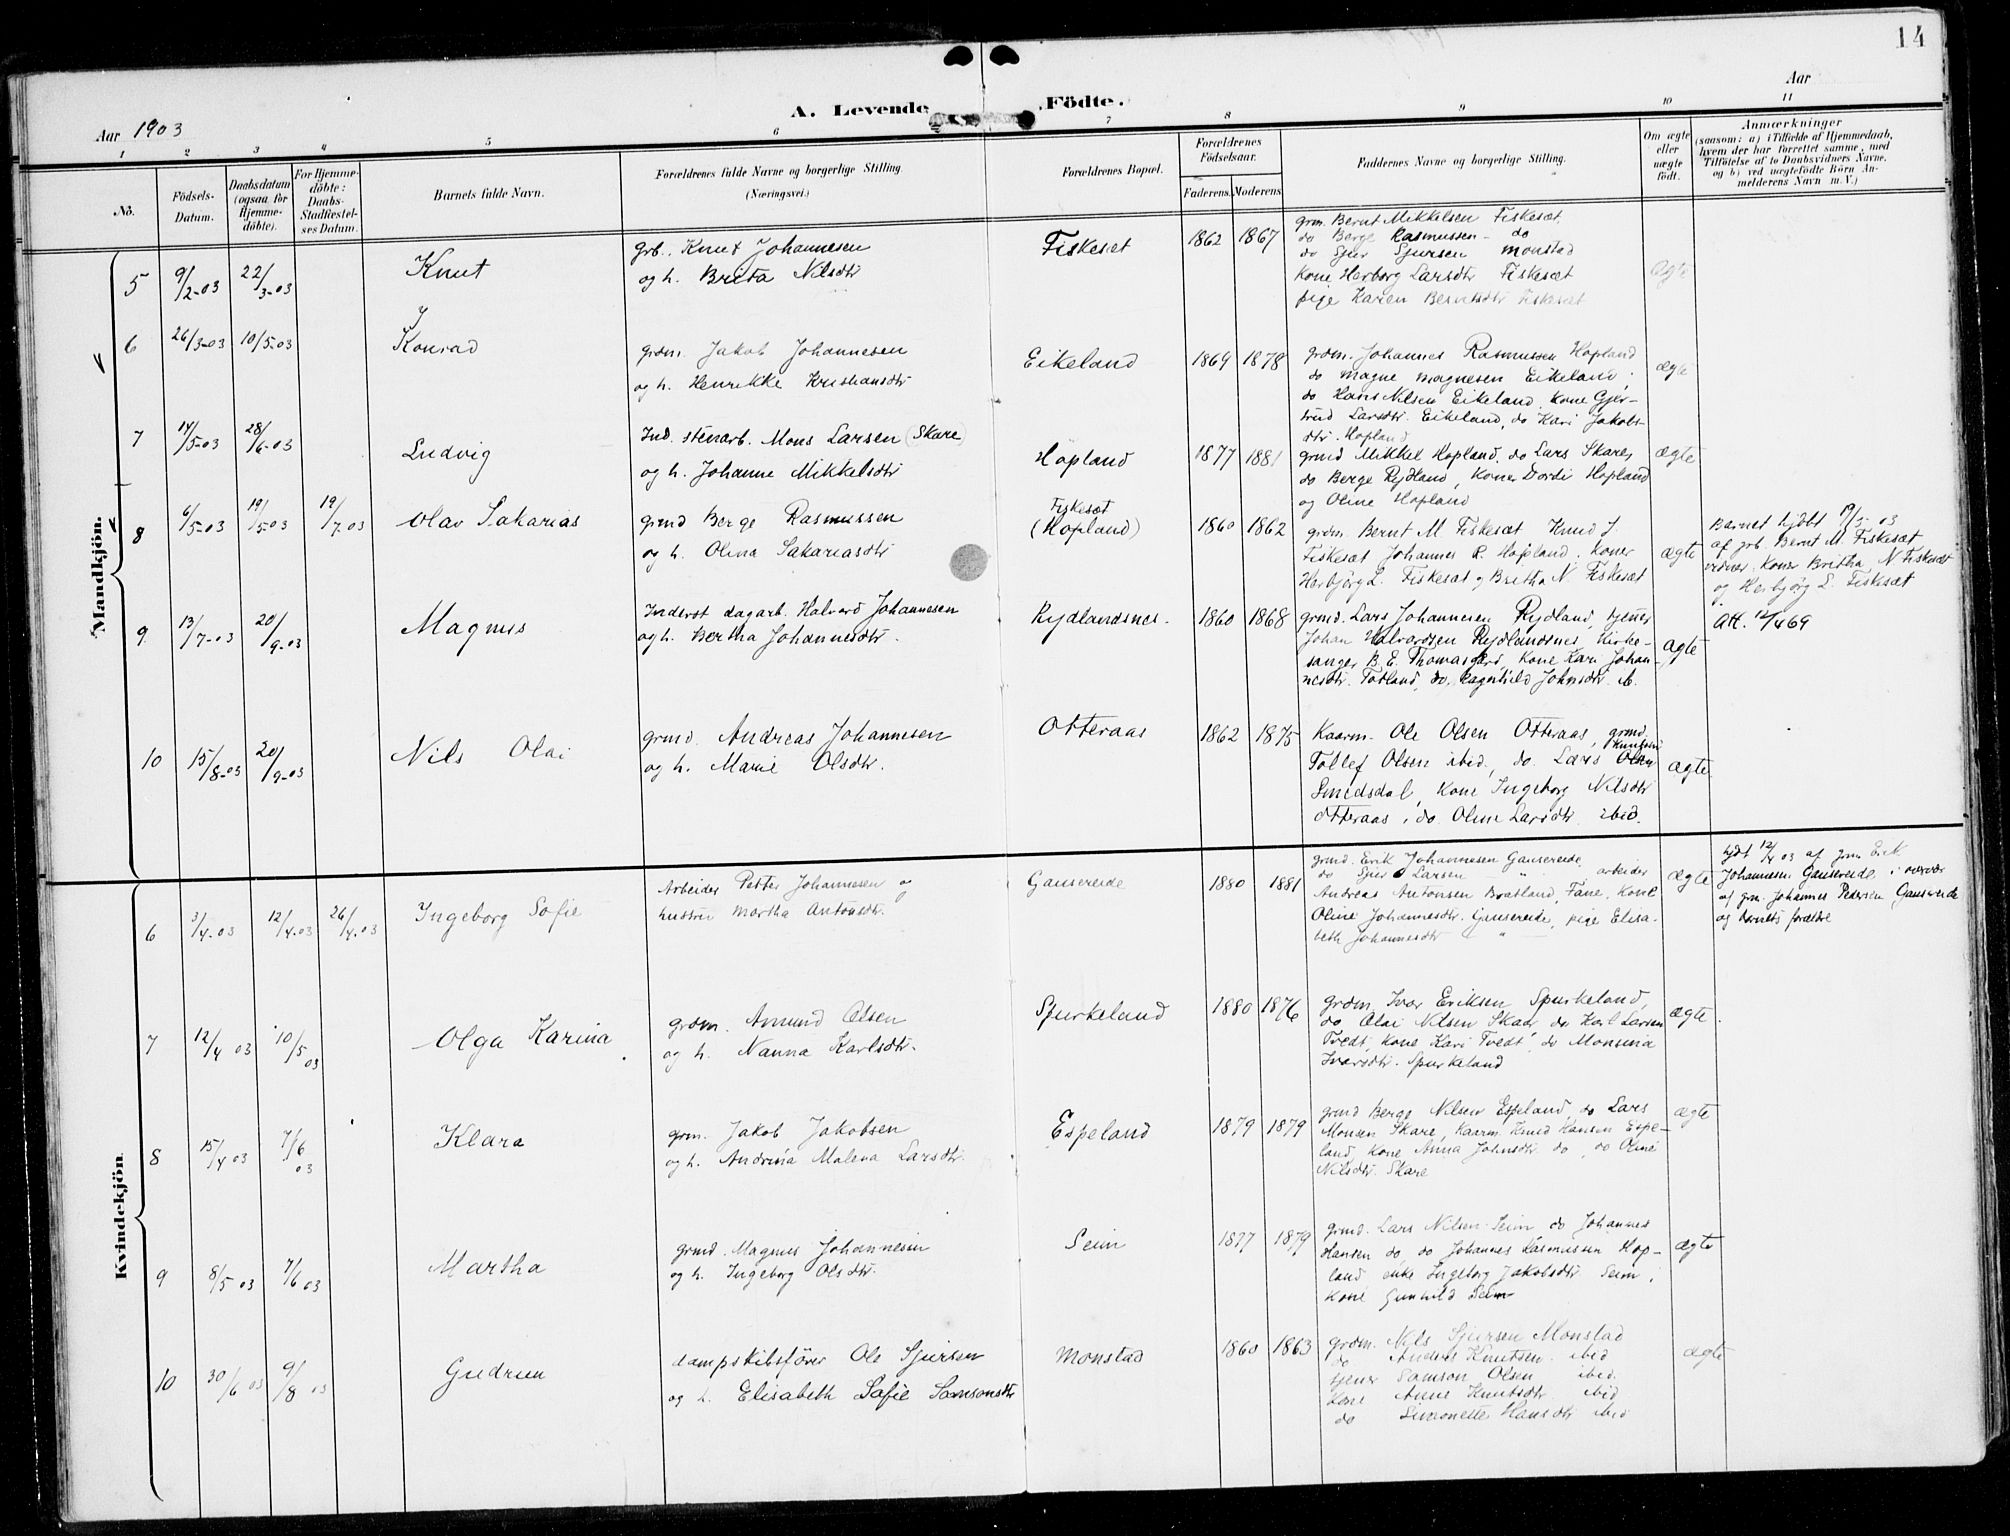 14
A. Levende Födte.
Aar 1903
Aar
1 2 3 4 5 6 7 8 9 10 11
No.
Födsels-
Datum.
Daabsdatum
(ogsaa for
Hjemme-
döbte).
For Hjemme-
döbte:
Daabs-
Stadfæstel-
ses Datum.
Barnets fulde Navn.
Forældrenes fulde Navne og borgerlige Stilling
(Næringsvei.)
Forældrenes Bopæl.
Forældrenes
Födselsaar.
Faderens. Moderens
Faddernes Navne og borgerlige Stilling.
Om ægte
eller
uægte
födt.
Anmærkninger
(saasom: a) i Tilfælde af Hjemmedaab,
hvem der har forrettet samme, med
Tilföielse af to Daabsvidners Navne,
og b) ved uægtefödte Börn An-
melderens Navn m. V.)
Mandkjön.
5 9/2-03 22/3-03 Knut
grb. Knut Johannesen
og h. Brita Nilsdtr
Fiskesæt 1862 1867
grm. Bernt Mikkelsen Fiskesæt
do Berge Rasmussen - do
do Sjur Sjursen Monstad
Kone Herborg Larsdtr Fiskesæt
pige Karen Berntsdtr Fiskesæt
ægte
6 26/3-03 10/5-03 Konrad
grdm. Jakob Johannesen
og h. Henrikke Kristiansdtr
Eikeland 1869 1878
grdm. Johannes Rasmussen Hopland
do Magne Magnesen Eikeland,
do Hans Nilsen Eikeland. Kone Gjer-
trud Larsdtr. Eikeland, do Kari Jakobs-
dtr. Hopland
ægte
7 14/5-03 28/6-03 Ludvig
Ind. stenarb. Mons Larsen (Skare)
og h. Johanne Mikkelsdtr
Hopland 1877 1881
grmd Mikkel Hopland, do Lars Skare,
do Berge Rydland, Koner Dordi Hopland
og Oline Hopland
ægte
8 6/5-03 19/5-03 19/7-03 Olav Sakarias
grmd Berge Rasmussen
og h. Olina Sakariasdtr
Fiskesæt
(Hopland) 1860 1862
grdm. Bernt M. Fiskesæt Knud J.
Fiskesæt, Johannes R. Hopland. Koner
Herbjörg L. Fiskesæt og Britha N. Fiskesæt
ægte
Barnet hjdbt 19/5-03
af grb. Bernt M. Fiskesæt
vidner. Koner Britha N. Fiskesæt
og Herbjörg L. Fiskesæt
9 13/7-03 20/9-03 Magnus
Inderst dagarb. Halvard Johannesen
og h. Bertha Johannesdtr.
Rydlandsnes. 1860 1868
grmd. Lars Johannesen Rydland, tjener
Johan Halvardsen Rydlandsnes, Kirke-
sanger B. E. Thomasgard, Kone Kari Johan-
nesdtr. Totland, do. Ragnhild Johnsdtr.
ægte
Att. 12/4 69
10 15/8-03 20/9-03 Nils Olai
grmd. Andreas Johannesen
og h. Marie Olsdtr.
Otteraas 1862 1875
Kaarm. Ole Olsen Otteraas, grmd.
Tollef Olsen ibid, do. Lars Knutsen Olsen
Smedsdal, Kone Ingeborg Nilsdtr
Otteraas, do. Oline Larsdtr. ibid.
ægte
Kvindekjön
6 3/4-03 12/4-03 26/4-03 Ingeborg Sofie
Arbeider Petter Johannesen og
hustru Martha Antonsdtr.
Gausereide 1880 1881
grmd. Erik Johannesen Gausereide,
do Sjur Larsen — " —, arbeider
Andreas Antonsen Bratland, Fane, Kone
Oline Johannesdtr. Gausereide, pige Elisa-
beth Johannesdtr — " —
ægte
hjdt 12/4 03 af grm. Erik
Johannesen Gausereide i overvær
af grm. Johannes Pedersen Gausereide
og barnets forældre
7 12/4 03 10/5 03 Olga Karina
grdm. Amund Olsen
og h. Nanna Karlsdtr.
Spurkeland 1880 1876
grdm. Ivar Eriksen Spurkeland,
do Olai Nilsen Skaar, do Karl Larsen
Tvedt, Kone Kari Tvedt, do Monsina
Ivarsdtr. Spurkeland
ægte
8 15/4 03 7/6 03 Klara
grm. Jakob Jakobsen
og h. Andrina Malena Larsdtr.
Espeland 1879 1879
grmd Berge Nilsen Espeland, do Lars
Monsen Skare, Kaarm. Knud Hansen Espe-
land, Kone Anna Johnsdtr. do, do Oline
Nilsdtr. Skare
ægte
9 8/5 03 7/6 03 Martha
grmd. Magnus Johannesen
og h. Ingeborg Olsdtr.
Seim 1877 1879
grmd. Lars Nilsen Seim, do Johannes
Hansen do, do Johannes Rasmussen Hop-
land, enke Ingeborg Jakobsdtr Seim,
Kone Gunhild Seim
ægte
10 30/6 03 9/8 03 Gudrun
dampskibsfører Ole Sjursen
og h. Elisabeth Sofie Samsonsdtr
Monstad 1860 1863
grdm. Nils Sjursen Monstad
do Anders Knutsen ibid
tjener Samson Olsen ibid.
Kone Anne Knutsdtr. ibid
do Simonette Hansdtr ibid
ægte